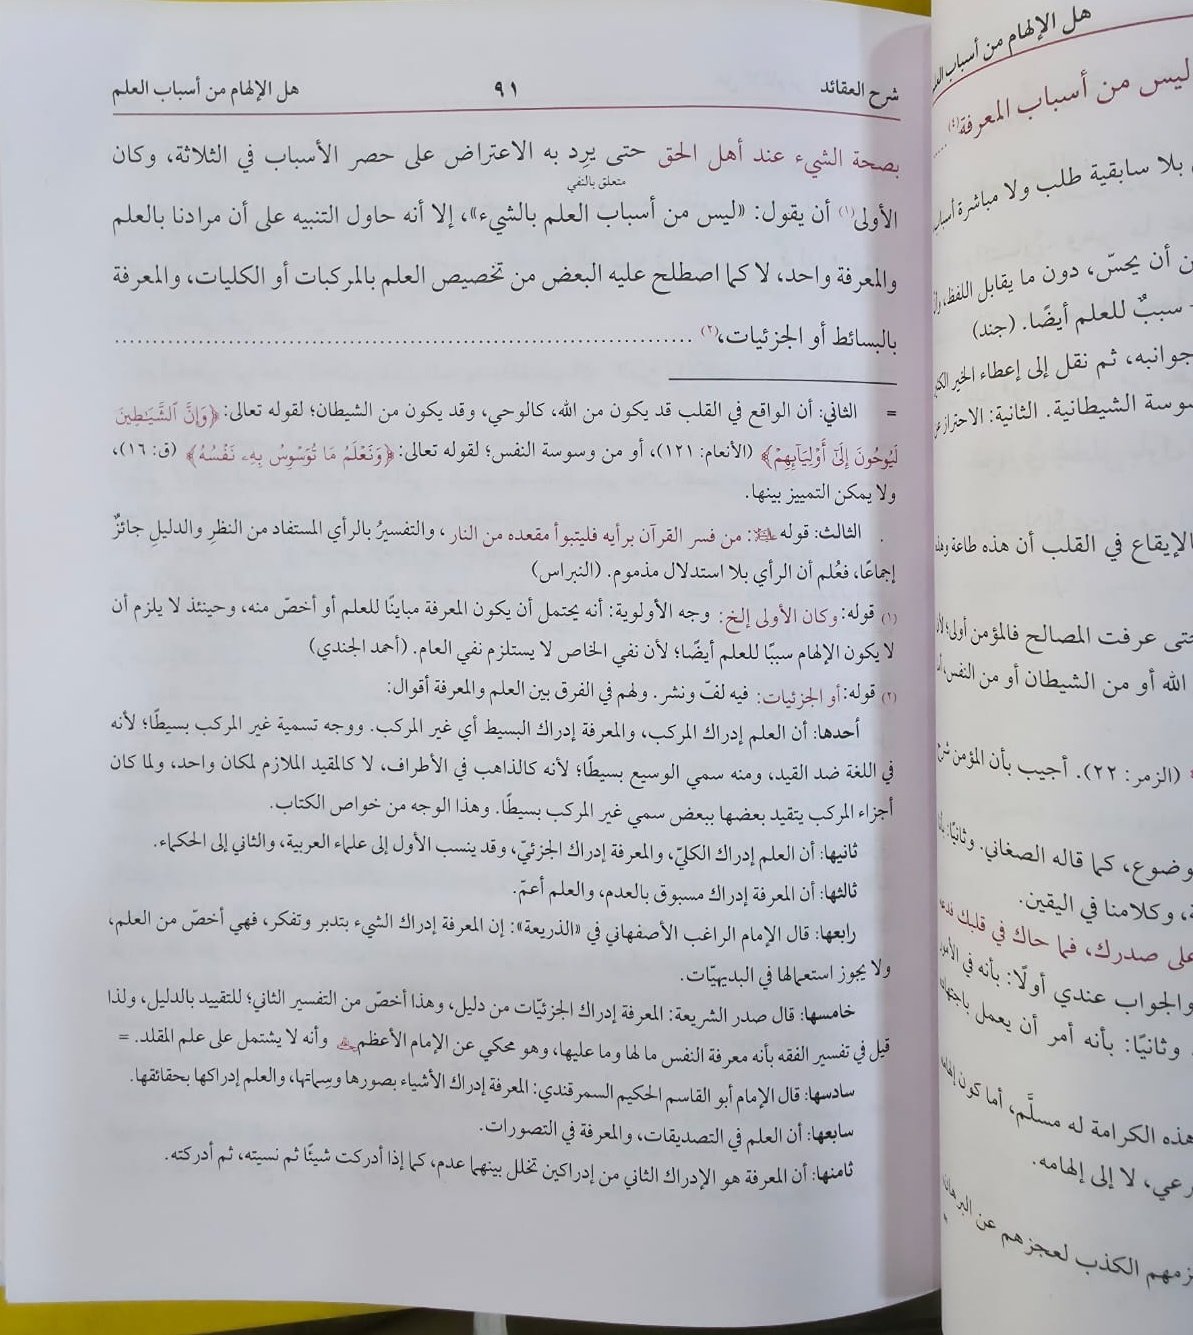 شرح العقائد ٩١ هل الإلهام من أسباب العلم
بصحة الشيء عند أهل الحق حتى يرِد به الاعتراض على حصر الأسباب في الثلاثة، وكان
متعلق بالنفي
الأولى(١) أن يقول: «ليس من أسباب العلم بالشيء»، إلا أنه حاول التنبيه على أن مرادنا بالعلم
والمعرفة واحد، لا كما اصطلح عليه البعض من تخصيص العلم بالمركبات أو الكليات، والمعرفة
بالبسائط أو الجزئيات،(٢) ........................................................
= الثاني: أن الواقع في القلب قد يكون من الله، كالوحي، وقد يكون من الشيطان؛ لقوله تعالى: ﴿وَإِنَّ ٱلشَّيَٰطِينَ
لَيُوحُونَ إِلَىٰٓ أَوْلِيَآئِهِمْ﴾ (الأنعام: ١٢١)، أو من وسوسة النفس؛ لقوله تعالى: ﴿وَنَعْلَمُ مَا تُوَسْوِسُ بِهِۦ نَفْسُهُۥ﴾ (ق: ١٦)،
ولا يمكن التمييز بينها.
الثالث: قوله ﷺ: من فسر القرآن برأيه فليتبوأ مقعده من النار، والتفسيرُ بالرأي المستفاد من النظرِ والدليلِ جائزٌ
إجماعًا، فعُلم أن الرأي بلا استدلال مذموم. (النبراس)
(١) قوله: وكان الأولى إلخ: وجه الأولوية: أنه يحتمل أن يكون المعرفة مباينًا للعلم أو أخصّ منه، وحينئذ لا يلزم أن
لا يكون الإلهام سببًا للعلم أيضًا؛ لأن نفي الخاص لا يستلزم نفي العام. (أحمد الجندي)
(٢) قوله: أو الجزئيات: فيه لفّ ونشر. ولهم في الفرق بين العلم والمعرفة أقوال:
أحدها: أن العلم إدراك المركب، والمعرفة إدراك البسيط أي غير المركب. ووجه تسمية غير المركب بسيطًا؛ لأنه
في اللغة ضد القيد، ومنه سمي الوسيع بسيطًا؛ لأنه كالذاهب في الأطراف، لا كالمقيد الملازم لمكان واحد، ولما كان
أجزاء المركب يتقيد بعضها ببعض سمي غير المركب بسيطًا. وهذا الوجه من خواص الكتاب.
ثانيها: أن العلم إدراك الكليّ، والمعرفة إدراك الجزئيّ، وقد ينسب الأول إلى علماء العربية، والثاني إلى الحكماء.
ثالثها: أن المعرفة إدراك مسبوق بالعدم، والعلم أعمّ.
رابعها: قال الإمام الراغب الأصفهاني في «الذريعة»: إن المعرفة إدراك الشيء بتدبر وتفكر، فهي أخصّ من العلم،
ولا يجوز استعمالها في البديهيّات.
خامسها: قال صدر الشريعة: المعرفة إدراك الجزئيّات من دليل، وهذا أخصّ من التفسير الثاني؛ للتقييد بالدليل، ولذا
قيل في تفسير الفقه بأنه معرفة النفس ما لها وما عليها، وهو محكي عن الإمام الأعظم وأنه لا يشتمل على علم المقلد. =
سادسها: قال الإمام أبو القاسم الحكيم السمرقندي: المعرفة إدراك الأشياء بصورها وسِماتها، والعلم إدراكها بحقائقها.
سابعها: أن العلم في التصديقات، والمعرفة في التصورات.
ثامنها: أن المعرفة هو الإدراك الثاني من إدراكين تخلل بينهما عدم، كما إذا أدركت شيئًا ثم نسيته، ثم أدركته.
هل الإلهام من أسباب
ليس من أسباب المعرفة(٤)
بلا سابقية طلب ولا مباشرة
أن يحسّ، دون ما يقابل اللفظ،
سببٌ للعلم أيضًا. (جند)
جوانبه، ثم نقل إلى إعطاء الخير
الشيطانية. الثانية: الاحتراز
الإيقاع في القلب أن هذه طاعة
عرفت المصالح فالمؤمن أولى؛
الله أو من الشيطان أو من النفس،
(الزمر: ٢٢). أجيب بأن المؤمن
كما قاله الصغاني. وثانيًا:
وكلامنا في اليقين.
على صدرك، فما حاك في قلبك
والجواب عندي أولًا: بأنه في
وثانيًا: بأنه أمر أن يعمل
هذه الكرامة له مسلَّم، أما كون
لا إلى إلهامه.
الكذب لعجزهم عن